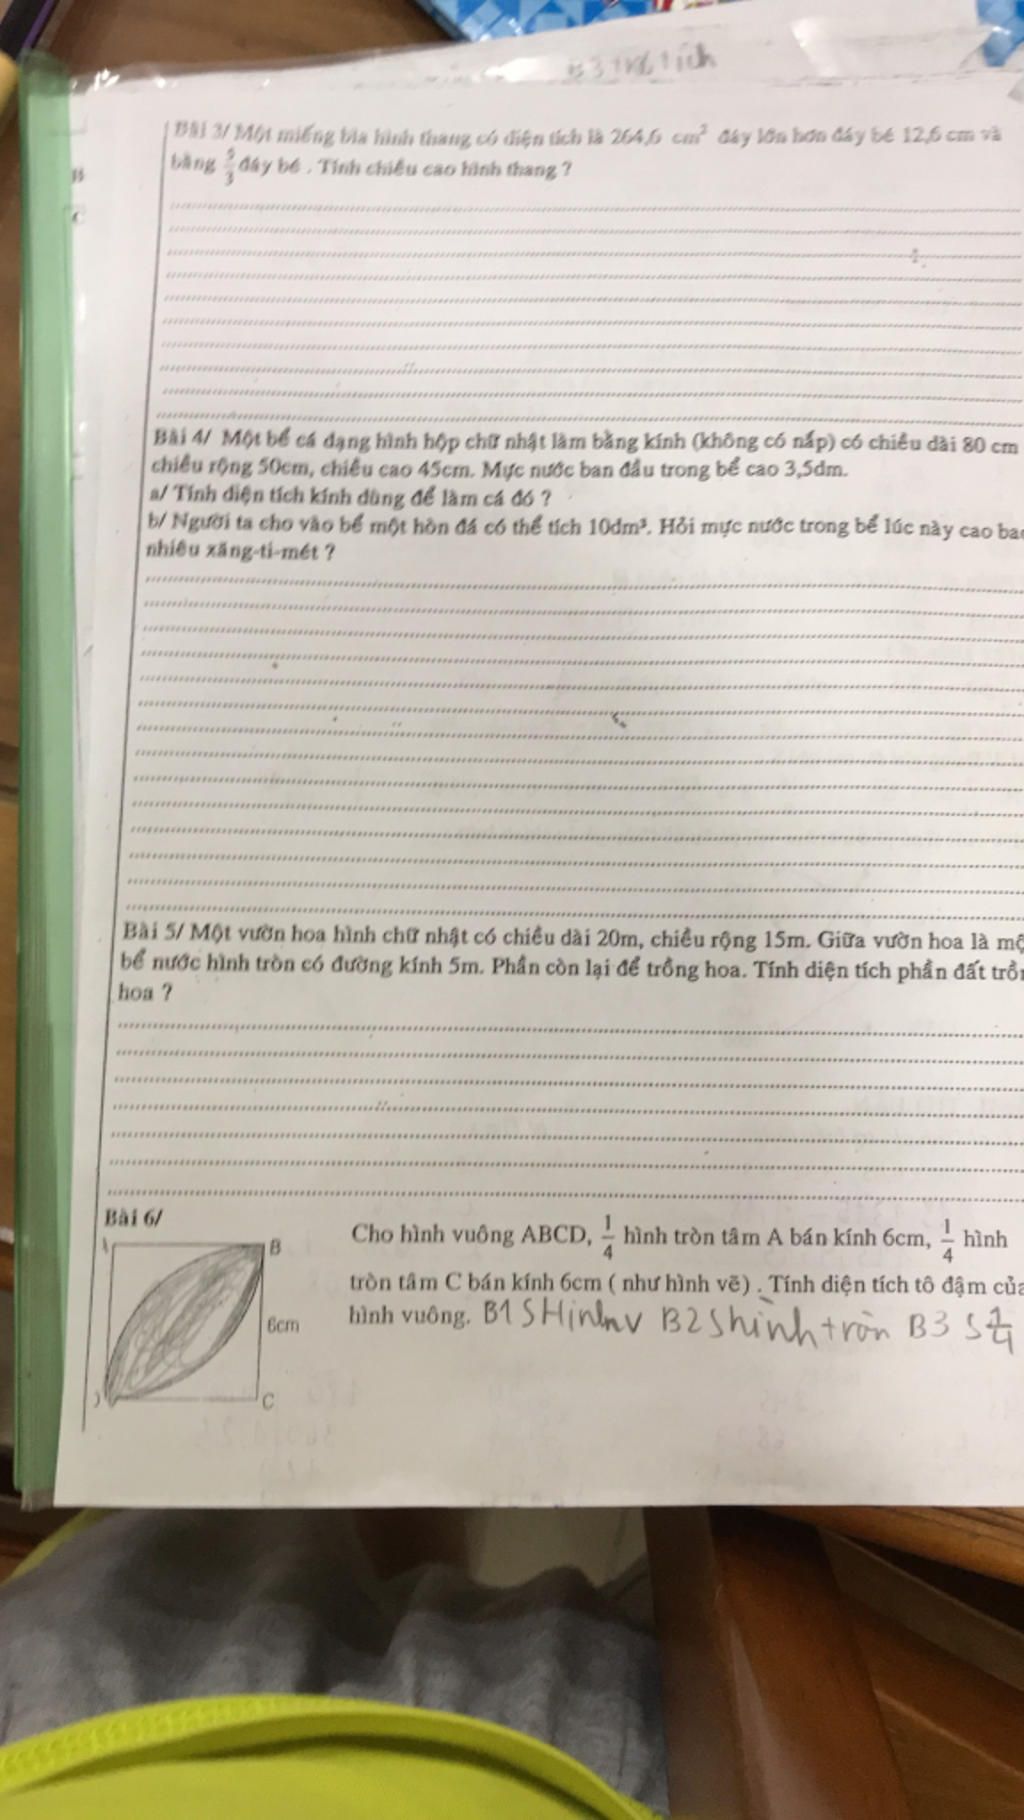 B3 tích
Bài 3/ Một miếng bìa hình thang có diện tích là 264,6 cm² đáy lớn hơn đáy bé 12,6 cm và
B
bằng 5/3 đáy bé . Tính chiều cao hình thang ?
C
Bài 4/ Một bể cá dạng hình hộp chữ nhật làm bằng kính (không có nắp) có chiều dài 80 cm
chiều rộng 50cm, chiều cao 45cm. Mực nước ban đầu trong bể cao 3,5dm.
a/ Tính diện tích kính dùng để làm cá đó ?
b/ Người ta cho vào bể một hòn đá có thể tích 10dm³. Hỏi mực nước trong bể lúc này cao
nhiêu xăng-ti-mét ?
Bài 5/ Một vườn hoa hình chữ nhật có chiều dài 20m, chiều rộng 15m. Giữa vườn hoa là
bể nước hình tròn có đường kính 5m. Phần còn lại để trồng hoa. Tính diện tích phần đất
hoa ?
Bài 6/
Cho hình vuông ABCD, 1/4 hình tròn tâm A bán kính 6cm, 1/4 hình
B
tròn tâm C bán kính 6cm ( như hình vẽ) . Tính diện tích tô đậm
6cm
hình vuông. B1 S Hình v B2 S hình tròn B3 S 1/4
C